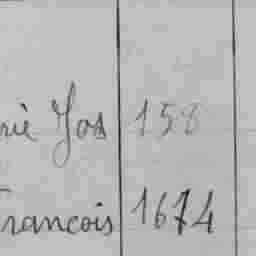 rie Jos 158
François 1674